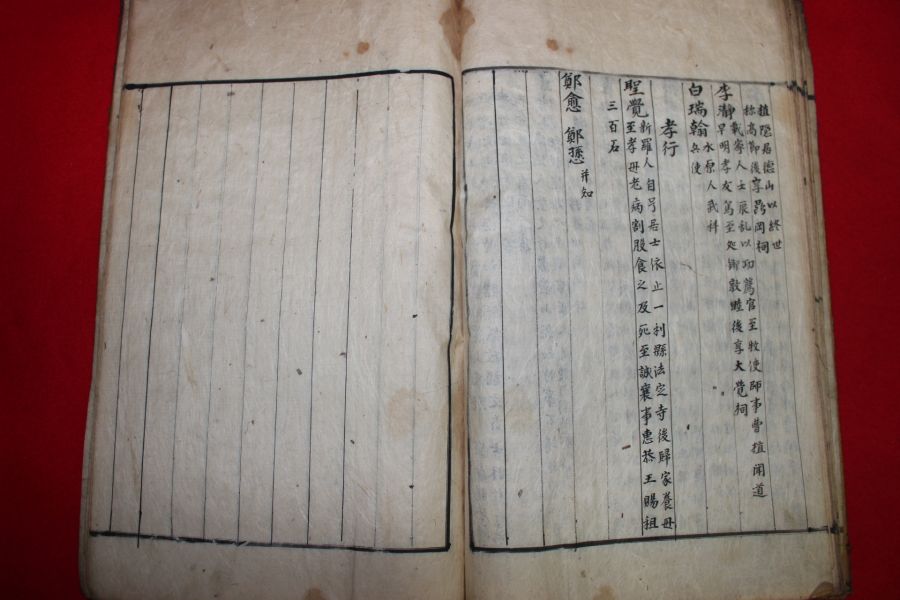 植隠居德山以終世
称高節後享龍岡祠
李瀞 載寧人壬辰乱以功薦官至牧使師事曺植聞道
早明孝友篤至处鄕敦睦後享大覺祠
白瑞翰 水原人武科
兵使
孝行
聖覺 新羅人自号居士依止一利縣法定寺後歸家養母
至孝母老病割股食之及死至誠襄事惠恭王賜租
三百石
鄭愈 鄭愻 并知